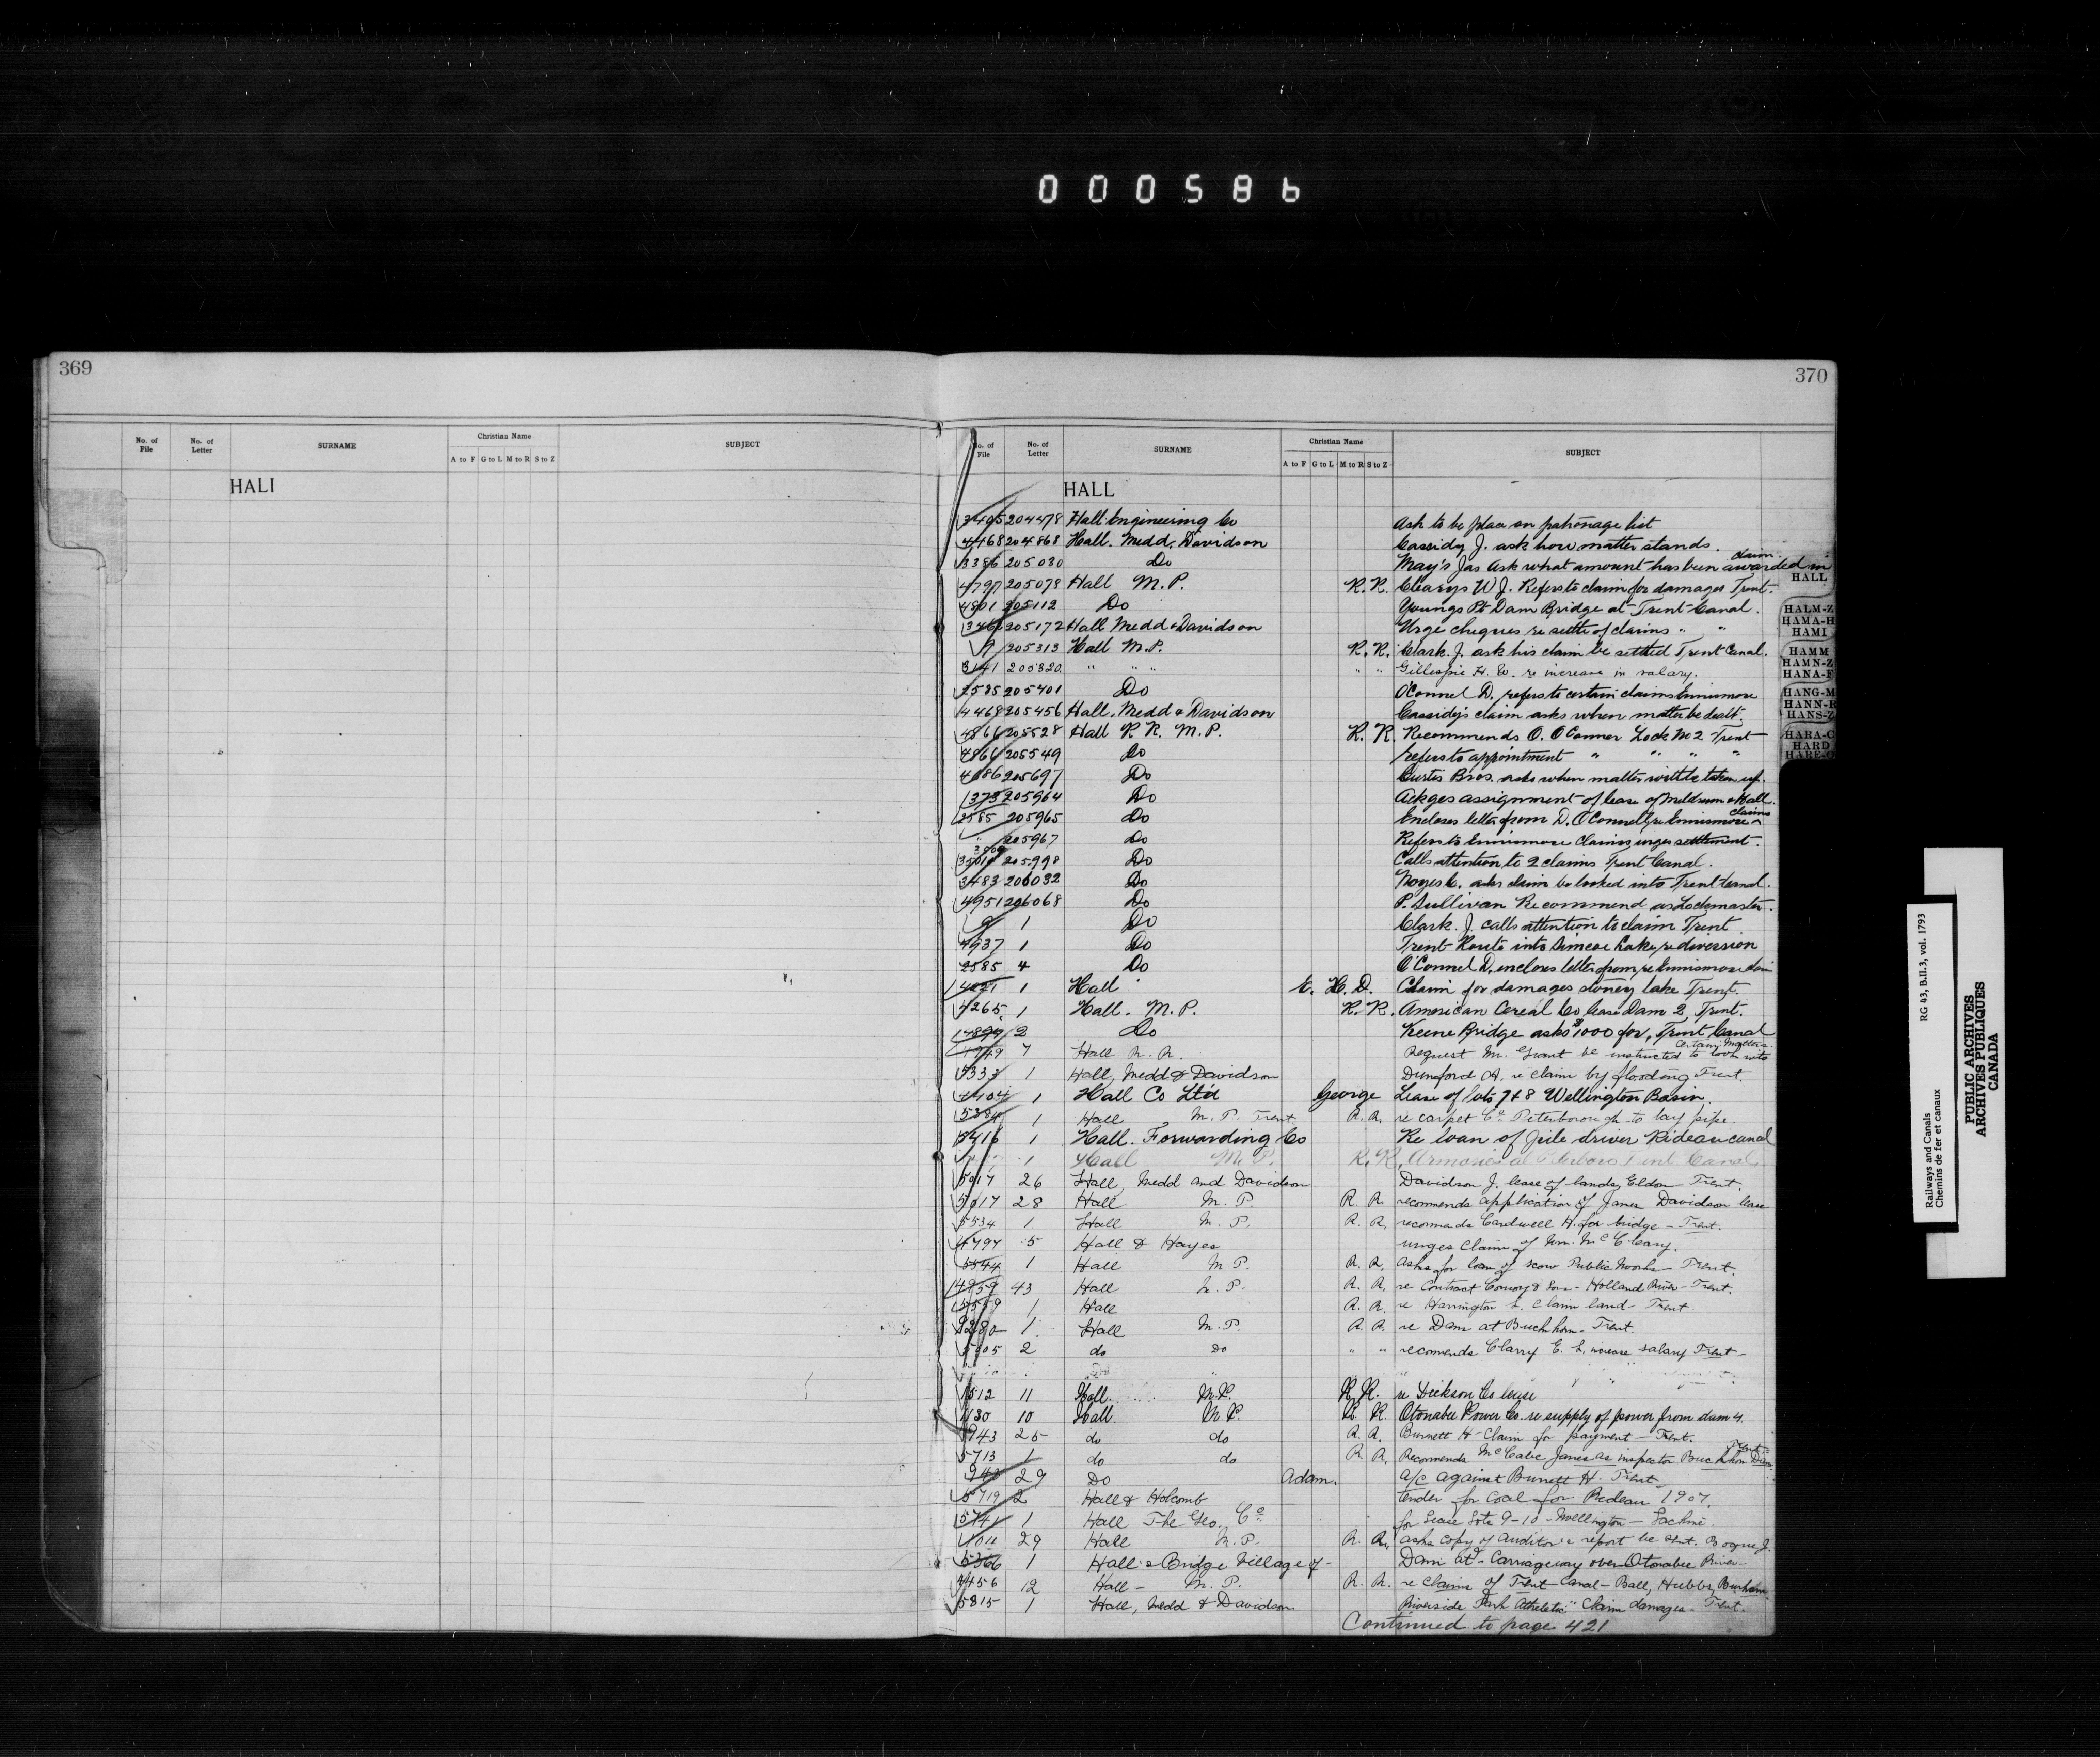 000586
369
370
No. of File No. of Letter SURNAME Christian Name A to F G to L M to R S to Z SUBJECT
HALI
No. of File No. of Letter SURNAME Christian Name A to F G to L M to R S to Z SUBJECT
HALL
3405 204478 Hall Engineering Co Ask to be place on patronage list
4468 204868 Hall. Medd, Davidson Cassidy J. ask how matter stands.
3386 205030 Do May's Jas Ask what amount has been awarded in claim
4797 205078 Hall M.P. R.R. Clearys W J. Refers to claim for damages Trent.
4801 205112 Do Youngs Pt Dam Bridge at Trent Canal.
346 205172 Hall Medd & Davidson Urge cheques re settle of claims " "
9 205313 Hall M.P. R.R. Clark. J. ask his claim be settled Trent Canal.
3141 205320 " " " " " Gillespie H. W. re increase in salary.
2585 205401 Do O'Connel D. refers to certain claims Ennismore
4468 205456 Hall, Medd & Davidson Cassidy's claim asks when matter be dealt.
4866 205528 Hall R R. M.P. R.R. Recommends O. O'Connor Lock No 2 Trent
4866 205549 Do Refers to appointment " " " "
4086 205697 Do Curtis Bros. asks when matter will be taken up.
1373 205964 Do Ackges assignment of lease of Meldrum & Hall.
2585 205965 Do Encloses letter from D. O'Connell re Ennismore claims
" 205967 Do Refers to Ennismore Claims urges settlement.
205998 Do Calls attention to 2 claims Trent Canal.
3483 206032 Do Noyes C. asks claim be looked into Trent Canal.
4951 206068 Do P. Sullivan Recommend as Lockmaster.
9 1 Do Clark. J. calls attention to claim Trent.
4937 1 Do Trent Route into Simcoe Lake, re diversion
2585 4 Do O'Connel D. encloses letter from, re Ennismore
1 Hall E. H. D. Claim for damages stoney lake Trent.
4265 1 Hall. M.P. R.R. American Cereal Co lease Dam 2, Trent.
4899 2 Do Keene Bridge asks $1000 for, Trent Canal
4949 7 Hall R.R. Request Mr. Grant be instructed to look into certain matters
5333 1 Hall, Medd & Davidson Dunsford A. re claim by flooding Trent.
1404 1 Hall Co Ltd George Lease of lots 7 & 8 Wellington Basin.
5384 1 Hall M.P. Trent R.R. re carpet Co. Peterborough to lay pipe.
5416 1 Hall. Forwarding Co Re loan of pile driver Rideau canal
1 Hall M.P. R.R. Armories at Peterboro Trent Canal.
5017 26 Hall, Medd and Davidson Davidson J. lease of lands, Eldon - Trent.
5017 28 Hall M.P. R.R. recomends application of James Davidson lease
5534 1 Hall M.P. R.R. recomends Cardwell H. for bridge - Trent.
4797 5 Hall & Hayes urges claim of Wm. McCleary.
5544 1 Hall M P. R.R. Asks for loan of scow Public Works - Trent.
4859 43 Hall M.P. R.R. re Contract Conroy & Son - Holland River - Trent.
5559 1 Hall R.R. re Harrington L. claim land - Trent.
5280 1 Hall M.P. R.R. re Dam at Buckhorn - Trent.
5605 2 do do " " recomends Clarry E. L. increase salary Trent -
1512 11 Hall M.P. R.R. re Dickson Co lease
1130 10 Hall M.P. R.R. Otonabee Power Co. re supply of power from dam 4.
943 25 do do R.R. Burnett H - Claim for payment - Trent.
5713 1 do do R.R. Recommends McCabe James as inspector Buckhorn Dam Trent
943 29 Do Adam. A/c against Burnett H. Trent
5719 2 Hall & Holcomb tender for Coal for Rideau 1907.
5741 1 Hall The Geo. Co. for Lease Lots 9-10 - Wellington - Lachine.
1011 29 Hall M.P. R.R. asks copy of Auditor's report be sent. Bogue J.
5366 1 Hall's Bridge Village of - Dam at - Carriageway over Otonabee River -
4456 12 Hall - M.P. R.R. re claims of Trent Canal - Ball, Hubbs, Burnham
5815 1 Hall, Medd & Davidson Riverside Park Athletic Claim damages - Trent.
Continued to page 421
HALL
HALM-Z
HAMA-H
HAMI
HAMM
HAMN-Z
HANA-F
HANG-M
HANN-R
HANS-Z
HARA-C
HARD
Railways and Canals RG 43, B.II.3, vol. 1793
Chemins de fer et canaux
PUBLIC ARCHIVES
ARCHIVES PUBLIQUES
CANADA